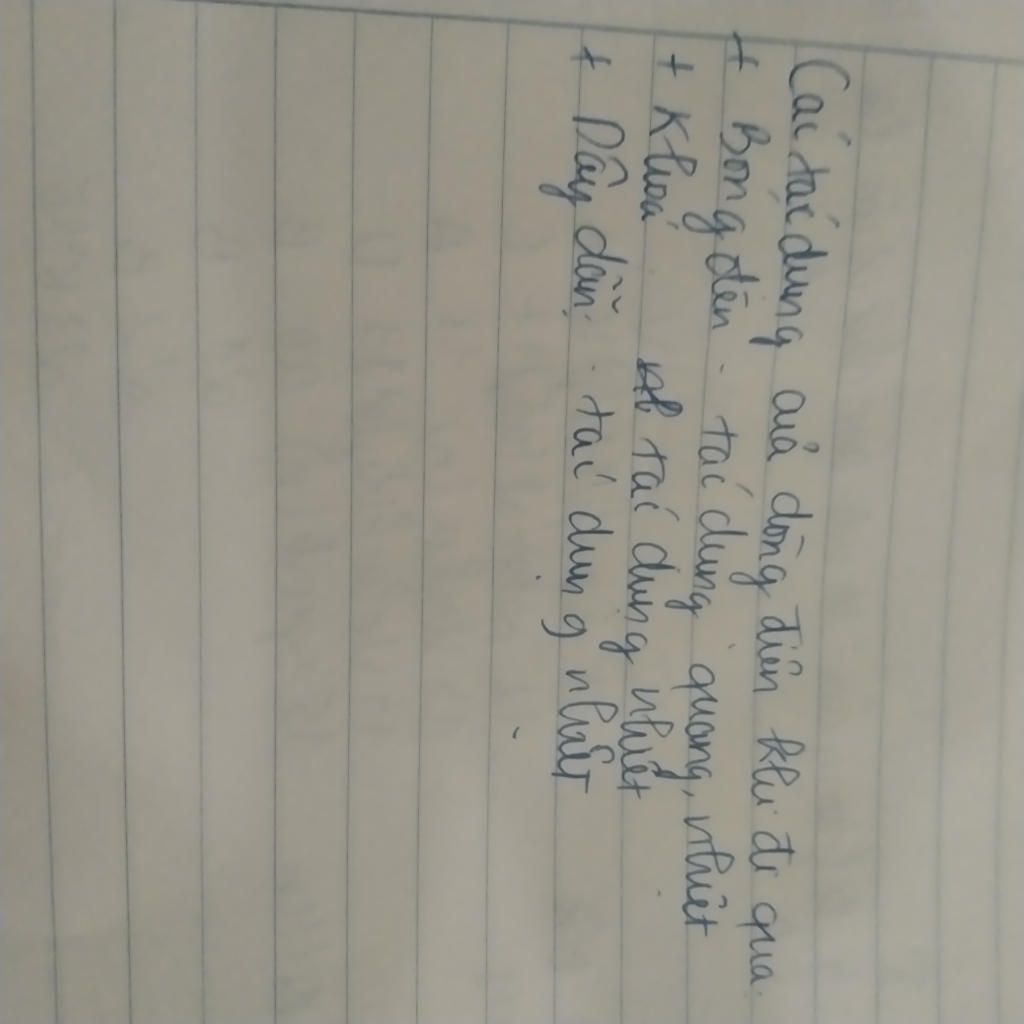 Các tác dụng của dòng điện khi đi qua.
+ Bóng đèn - tác dụng quang, nhiệt
+ Khoá tác dụng nhiệt
+ Dây dẫn. tác dụng nhiệt